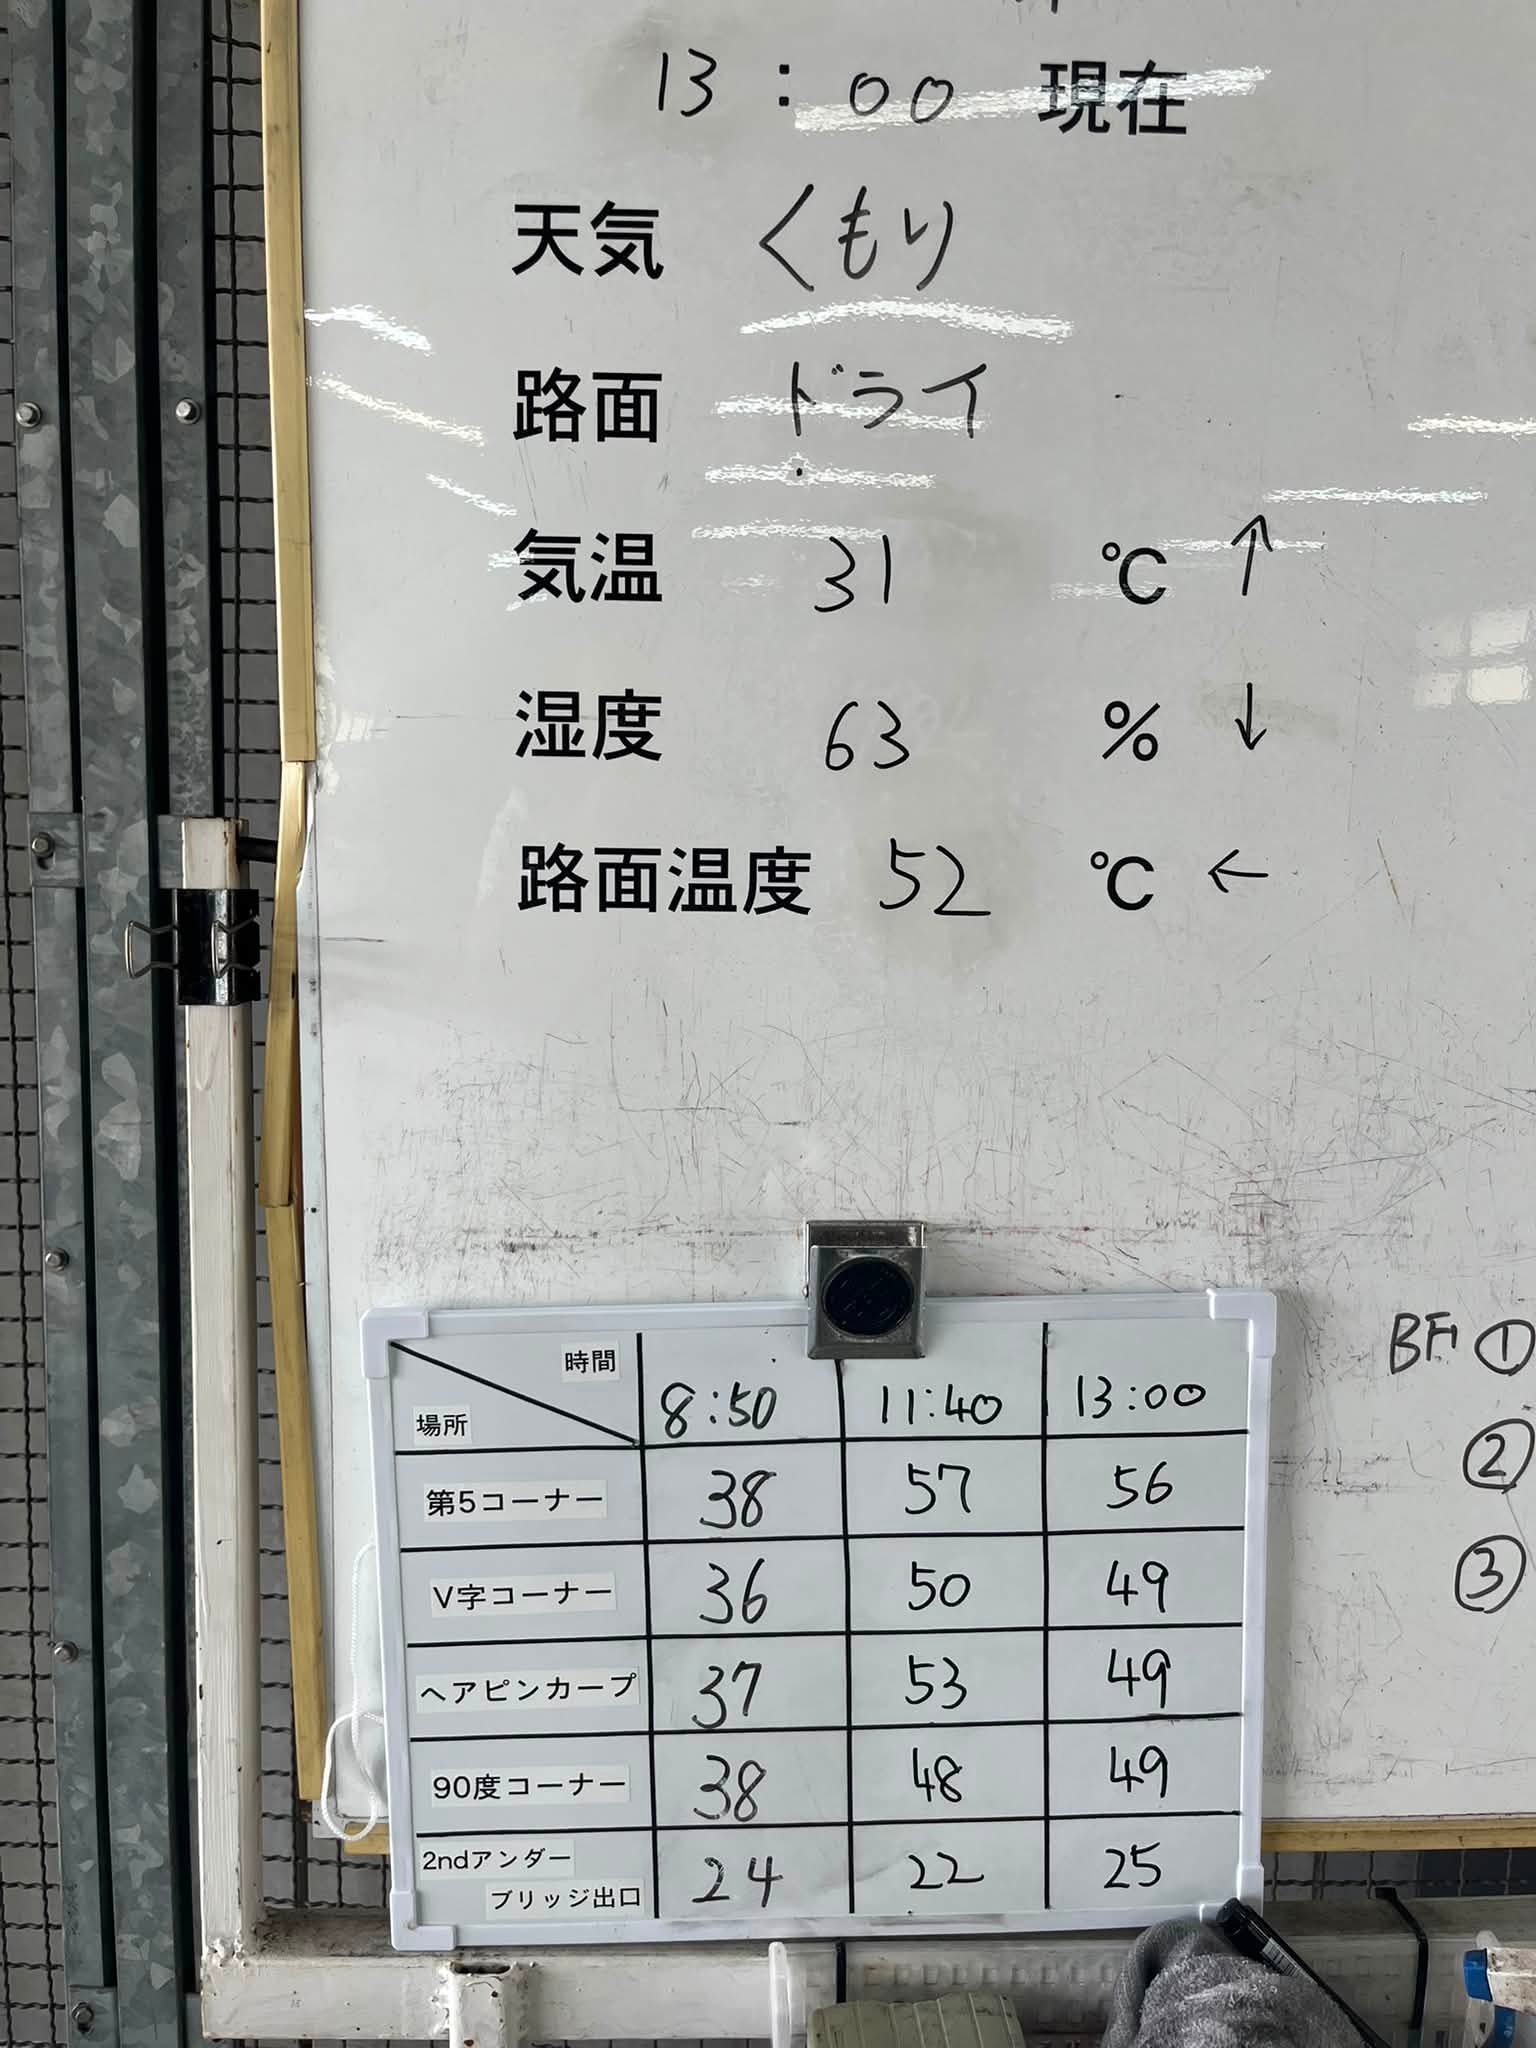 13 : 00 現在
天気 くもり
路面 ドライ
気温 31 ℃ ↑
湿度 63 % ↓
路面温度 52 ℃ ←
BF ①
②
③
時間 8:50 11:40 13:00
場所
第5コーナー 38 57 56
V字コーナー 36 50 49
ヘアピンカーブ 37 53 49
90度コーナー 38 48 49
2ndアンダー
ブリッジ出口 24 22 25